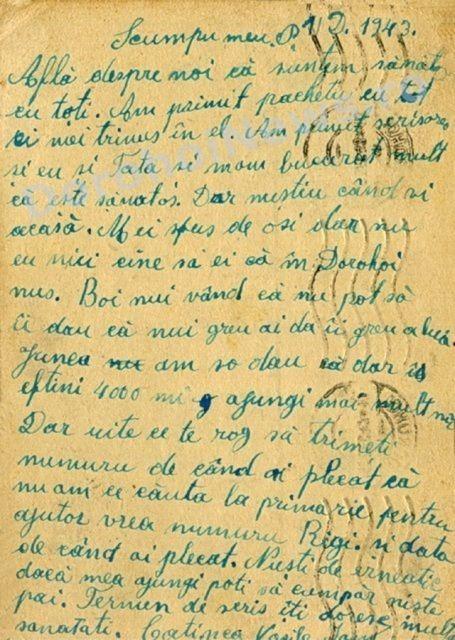 Scumpu meu. P 1 D. 1943.
Află despre noi că suntem sănăt
cu toți. Am primit pachetu cu tot
ci noi trimis în el. Am primit scrisorea
si eu si Tata si mam bucurat mult
că este sănatos. Dar mistiu când vi
acasă. Mei spus de osi dar nu
eu nici cine sa ei că în Dorohoi
nus. Boi nui vând că nu pot să
îi dau că nui greu ai da îi greu alua.
Junea am so dau dar is
eftini 4000 mi agungi mai mult nu
Dar uite ce te rog să trimeți
numuru de când ai plecat că
nu am ce căuta la primarie pentru
ajutor vrea numuru Regi. si data
de când ai plecat. Niesti de
dacă mea ajungi poti vă cumpar niste
pai. Termen de scris iti doresc mult
sanatati. Catinca Vasile